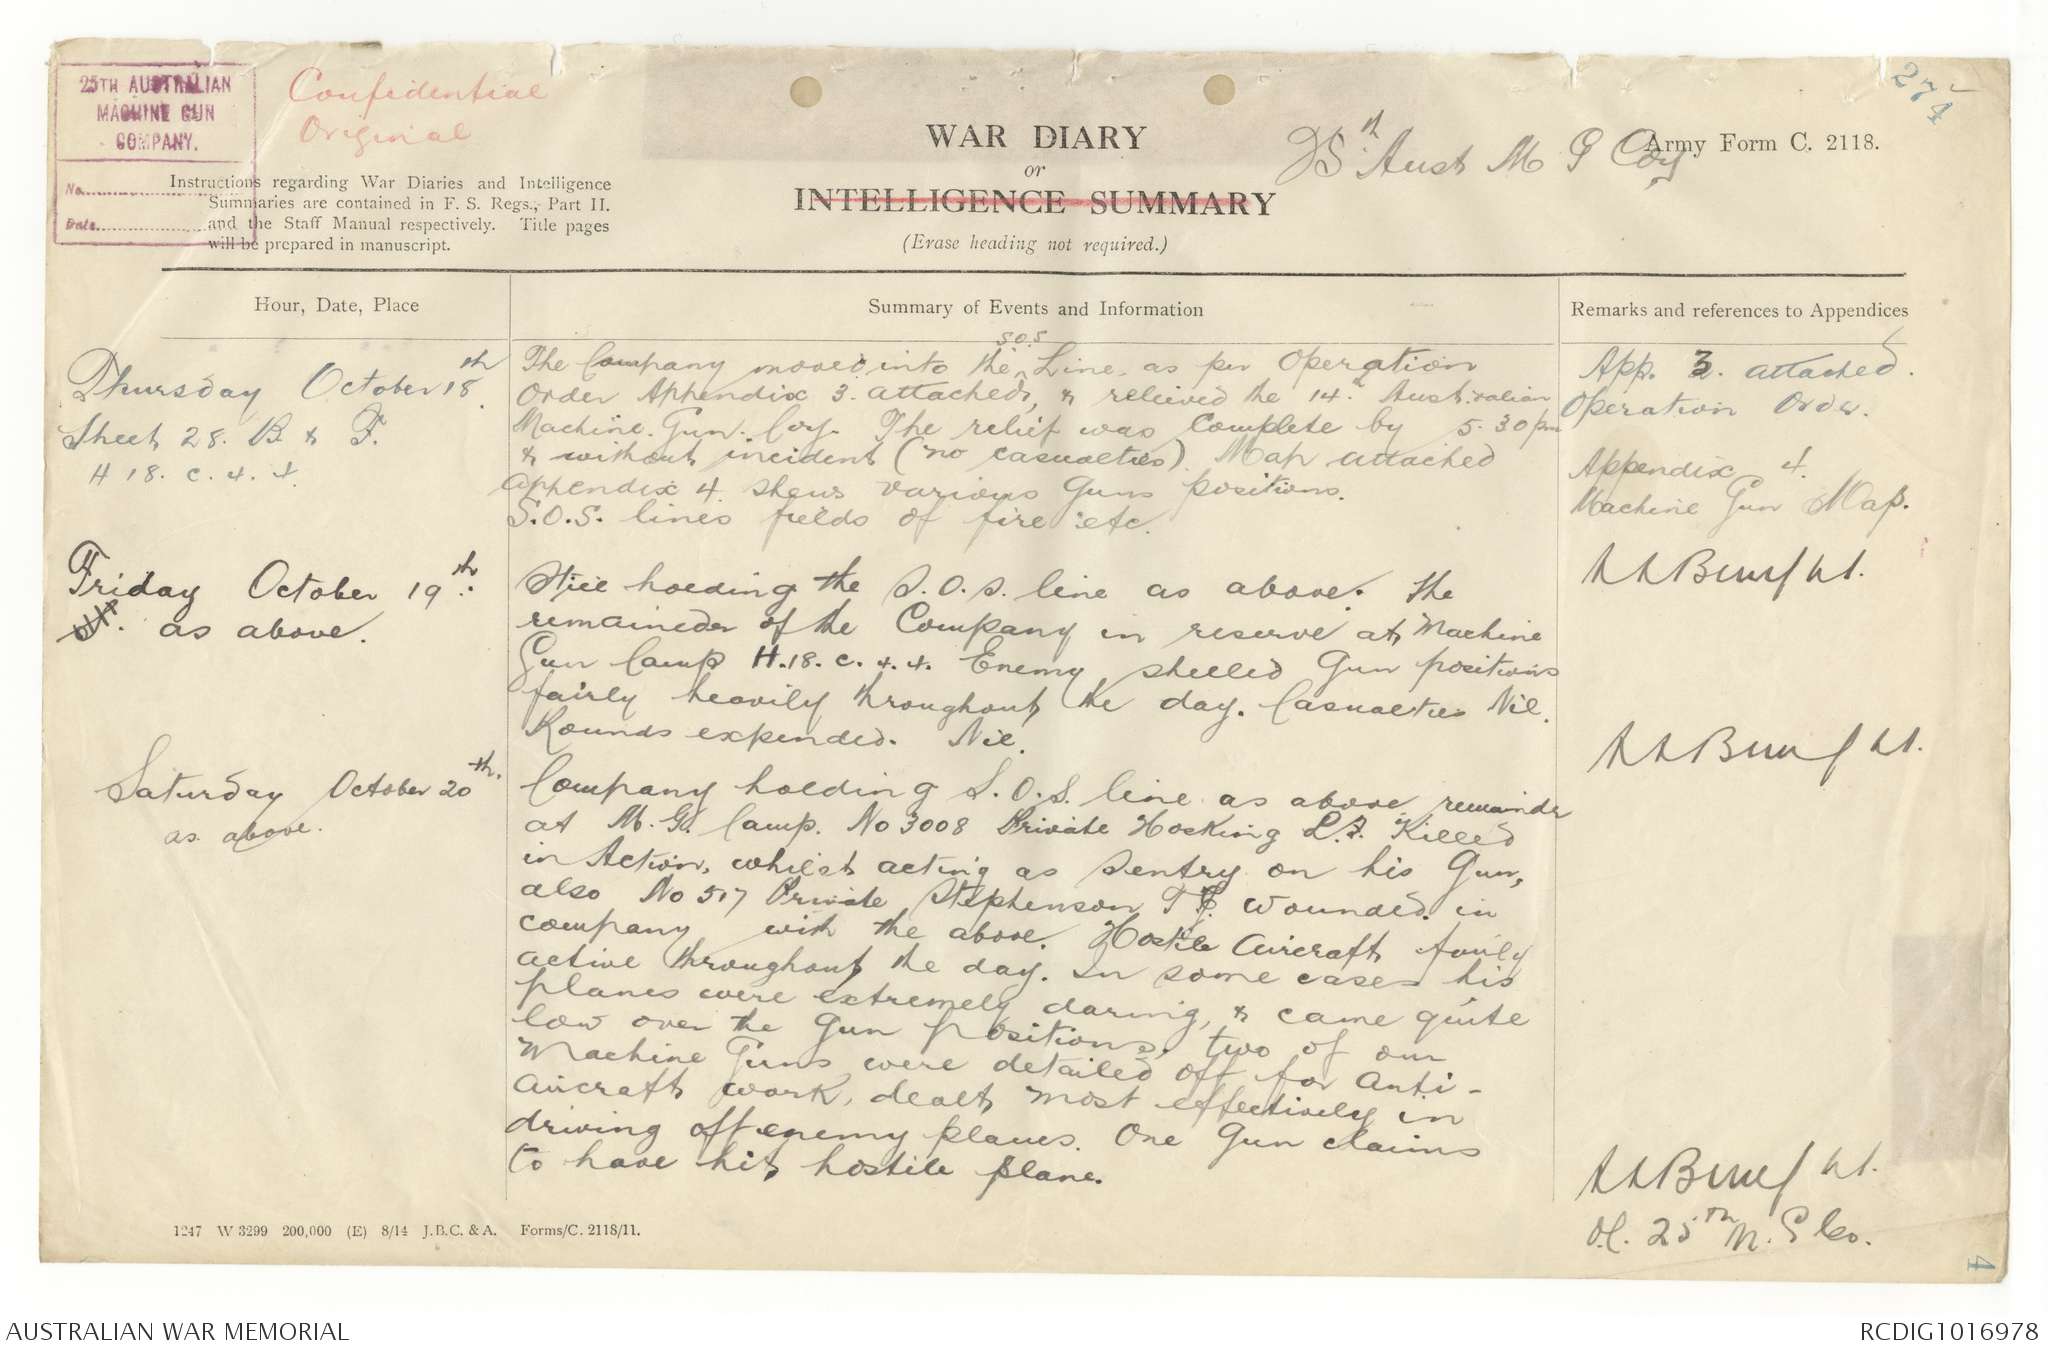 25TH AUSTRALIAN
MACHINE GUN
COMPANY.
No.
Date.
Confidential
Original
274
WAR DIARY
or
INTELLIGENCE SUMMARY
(Erase heading not required.)
25th Aust M G Coy
Army Form C. 2118.
Instructions regarding War Diaries and Intelligence
Summaries are contained in F. S. Regs., Part II.
and the Staff Manual respectively. Title pages
will be prepared in manuscript.
Hour, Date, Place
Summary of Events and Information
Remarks and references to Appendices
Thursday October 18th
Sheet 28. B. & F.
H 18. c. 4. 4.
The Company moved into the S.O.S Line, as per Operation
Order Appendix 3. attached, & relieved the 14th Australian
Machine. Gun. Coy. The relief was complete by 5.30 pm
& without incident (no casualties). Map attached
Appendix 4 shews various Guns positions.
S.O.S. lines fields of fire etc.
App. 3. attached.
Operation Order.
Appendix 4.
Machine Gun Map.
Friday October 19th.
as above.
Still holding the S.O.S. line as above. The
remainder of the Company in reserve at Machine
Gun Camp H.18.c.4.4. Enemy shelled Gun positions
fairly heavily throughout the day. Casualties Nil.
Rounds expended. Nil.
Saturday October 20th.
as above.
Company holding S.O.S. line as above remainder
at M.G. Camp. No 3008 Private Hosking L.J. Killed
in Action, whilst acting as Sentry on his Gun,
also No 517 Private Stephenson T. wounded in
company with the above. Hostile Aircraft fairly
active throughout the day. In some cases his
planes were extremely daring, & came quite
low over the Gun positions, two of our
Machine Guns were detailed off for Anti-
aircraft work, dealt most effectively in
driving off enemy planes. One Gun claims
to have hit hostile plane.
O.C. 25th M. G Co.
1247 W 3299 200,000 (E) 8/14 J.B.C. & A. Forms/C. 2118/11.
4
AUSTRALIAN WAR MEMORIAL
RCDIG1016978